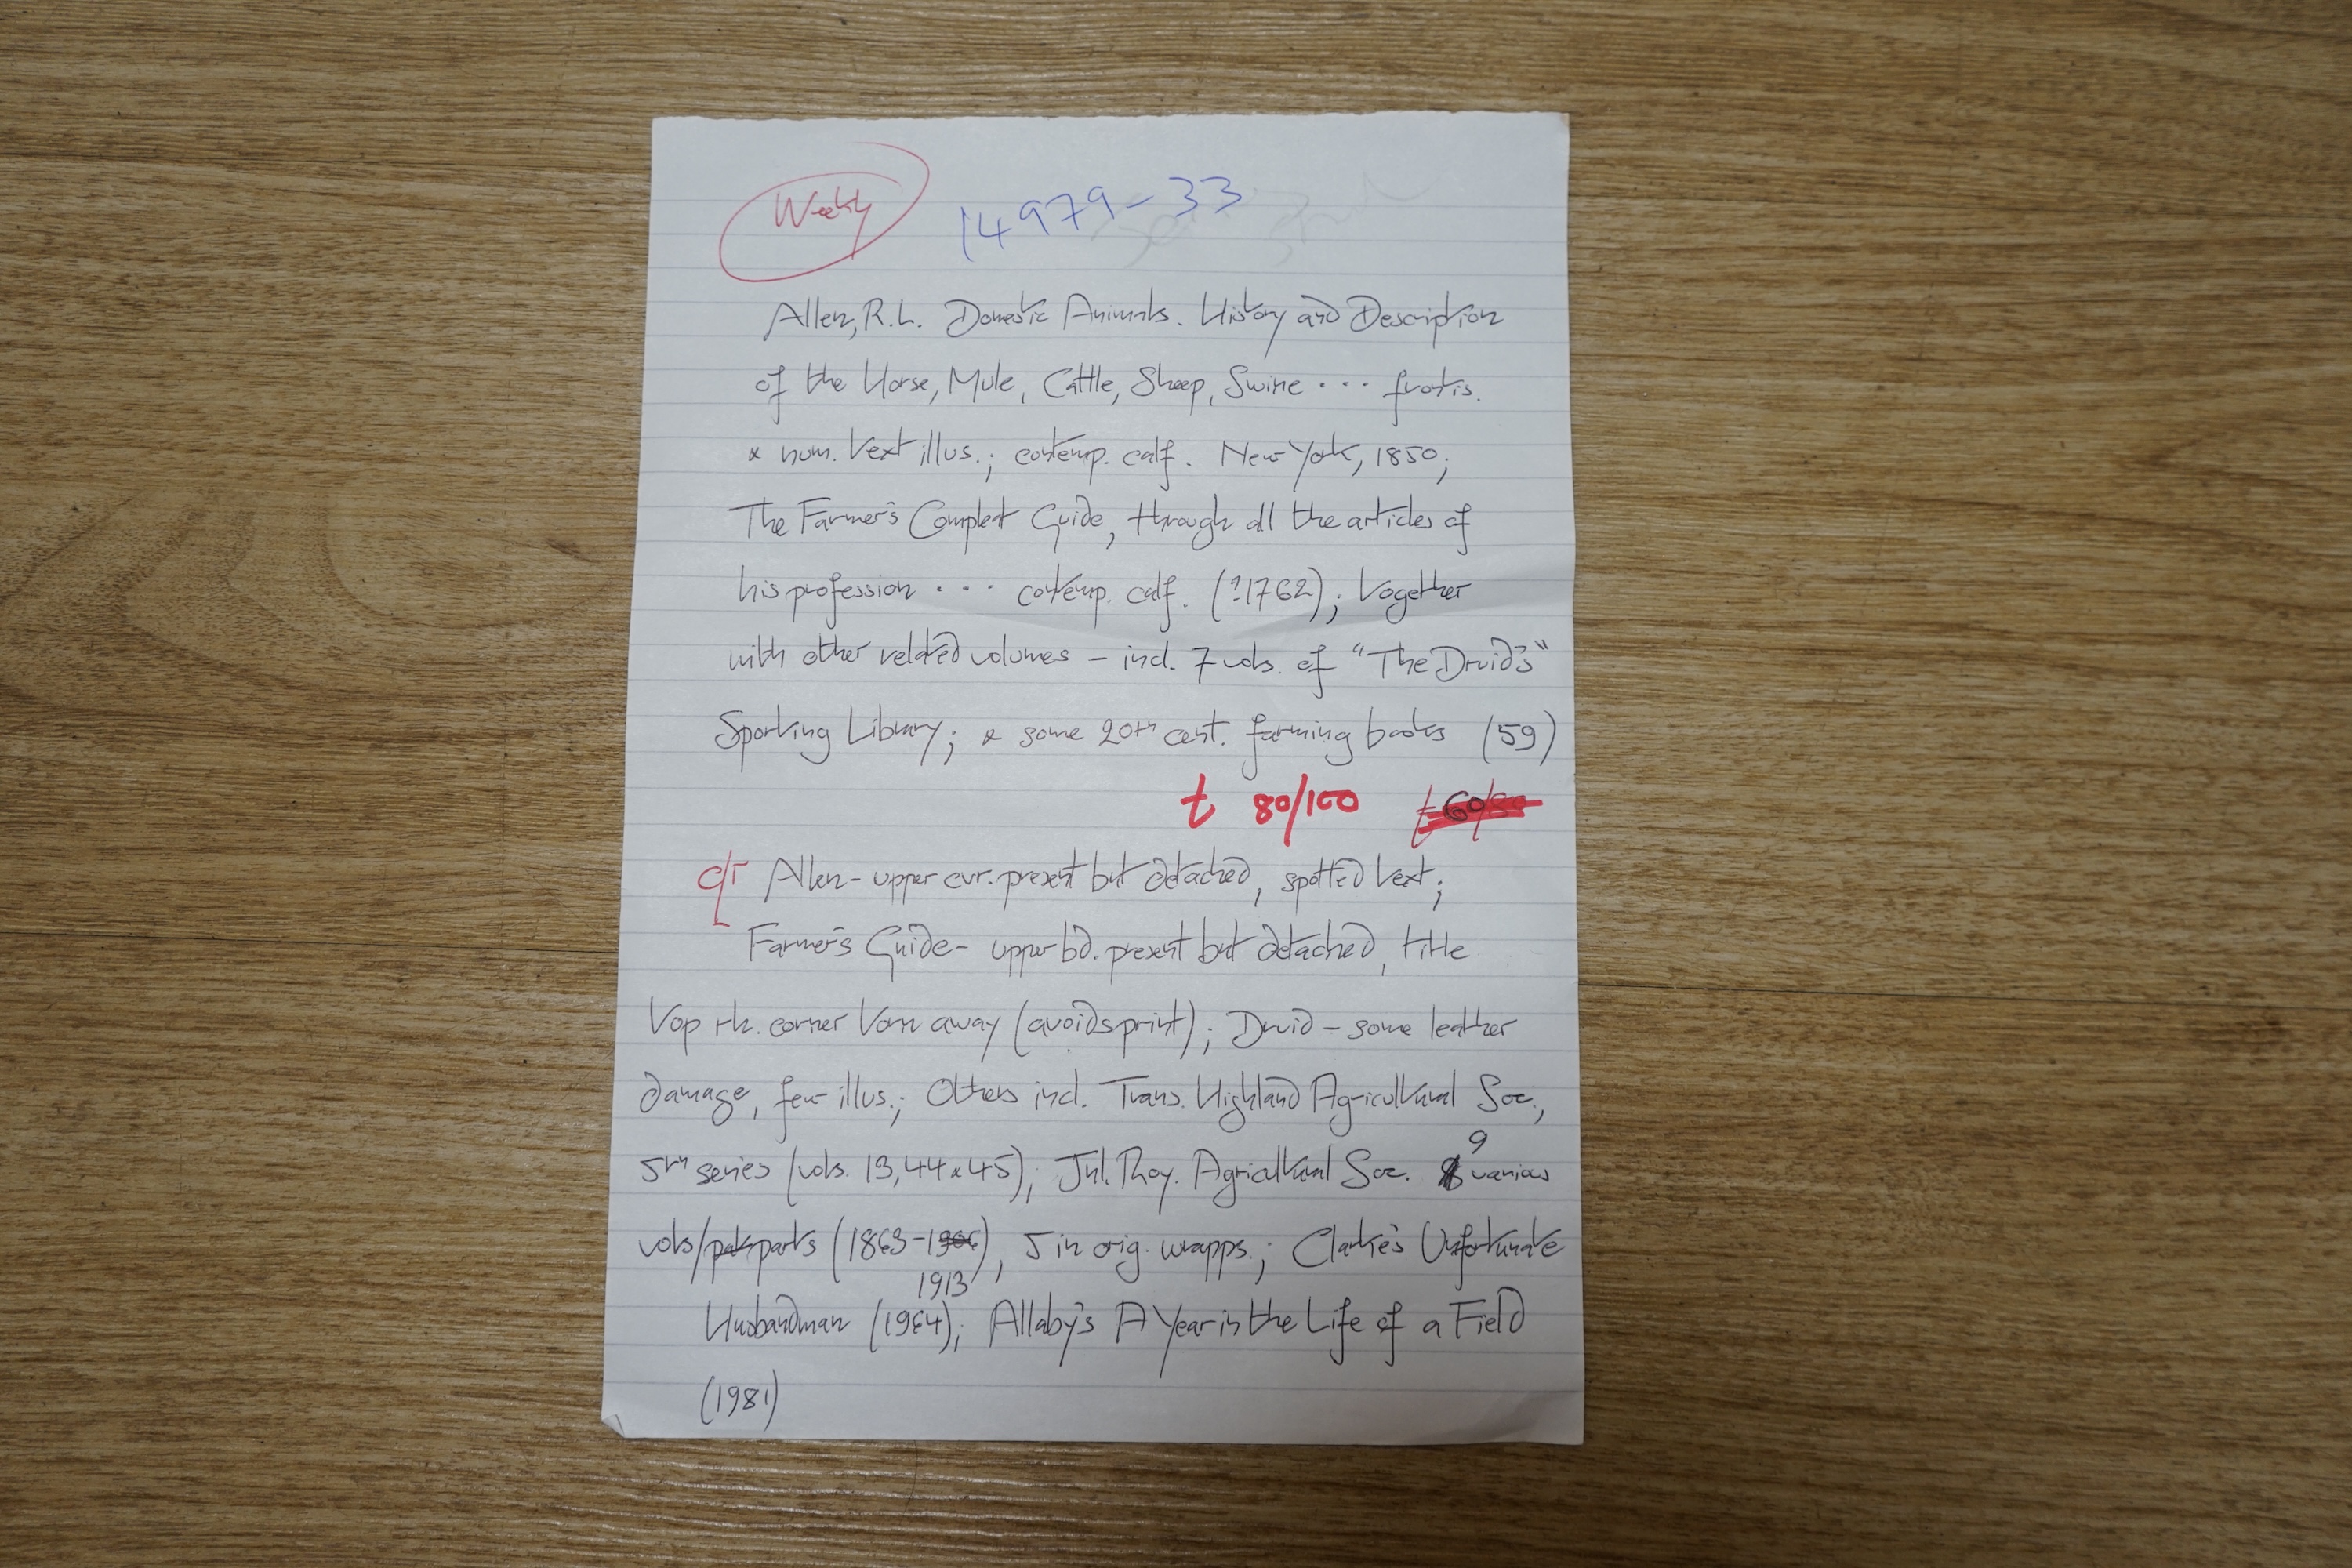 Weekly 14979-33
Allen, R.L. Domestic Animals. History and Description
of the Horse, Mule, Cattle, Sheep, Swine ... frontis.
& num. text illus.; contemp. calf. New York, 1850;
The Farmer's Compleat Guide, through all the articles of
his profession ... contemp. calf. (?1762); together
with other related volumes - incl. 7 vols. of "The Druid's"
Sporting Library; & some 20th cent. farming books (59)
t 80/100 t 60/80
c/r Allen - upper cvr. present but detached, spotted text;
Farmer's Guide - upper bd. present but detached, title
top rh. corner torn away (avoids print); Druid - some leather
damage, few illus.; Others incl. Trans. Highland Agricultural Soc.,
5th series (vols. 13, 44 & 45); Jnl. Roy. Agricultural Soc. 9 various
vols/parts (1863-1906), 5 in orig. wrapps.; Clarke's Unfortunate
1913
Husbandman (1964); Allaby's A Year in the Life of a Field
(1981)